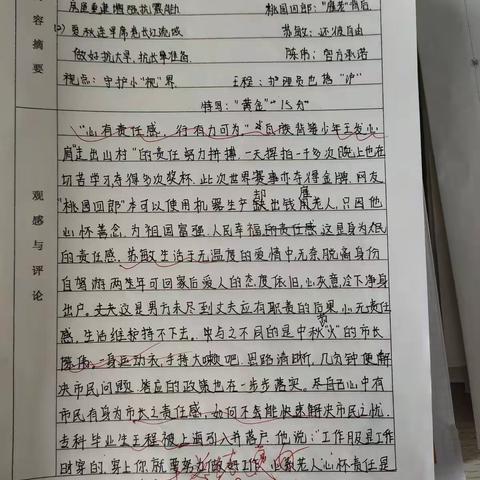 房屋重建 增强抗震能力
桃园四郎：“雇老”背后
(2) 夏秋连旱席卷长江流域
苏敏：还很自由
做好抗大旱、抗长旱准备
陈伟：官方承诺
视点：守护小“视”界
王程：护理员也落“沪”
特写：“黄金”“15分”
容摘要
观感与评论
“心有责任感，行有力可为”
背篓少年王发
“走出山村”的责任努力拼搏，一天挥拍一千多次，晚上也在
切苦学习夺得多次奖杯。此次世界赛事亦夺得金牌，网友
却 雇
“桃园四郎”本可以使用机器生产缺出钱用老人，只因他
心怀善念，为祖国富强、人民幸福所责任感，这是身为人民
的责任感，苏敏生活于无温度的爱情中，无奈脱离身份
自驾游，两年可回家后爱人的态度依旧，心灰意冷下净身
出户。丈夫这是男方未尽到丈夫应有职责的后果，小无责任
感，生活维持不下去。与之不同的是中秋“火”的市长
陈伟，一身运动衣，手持大喇吧，思路清晰，几分钟便解
决市民问题，答应的政策也在一步步落实。尽自己心中有
市民有身为市长之责任感，如何不会能快速解决市民之忧，
专科毕业生王程被上海引入并落户，他说：“工作服是工作
时穿的，穿上你就要努力做好工作”心系老人心怀责任是